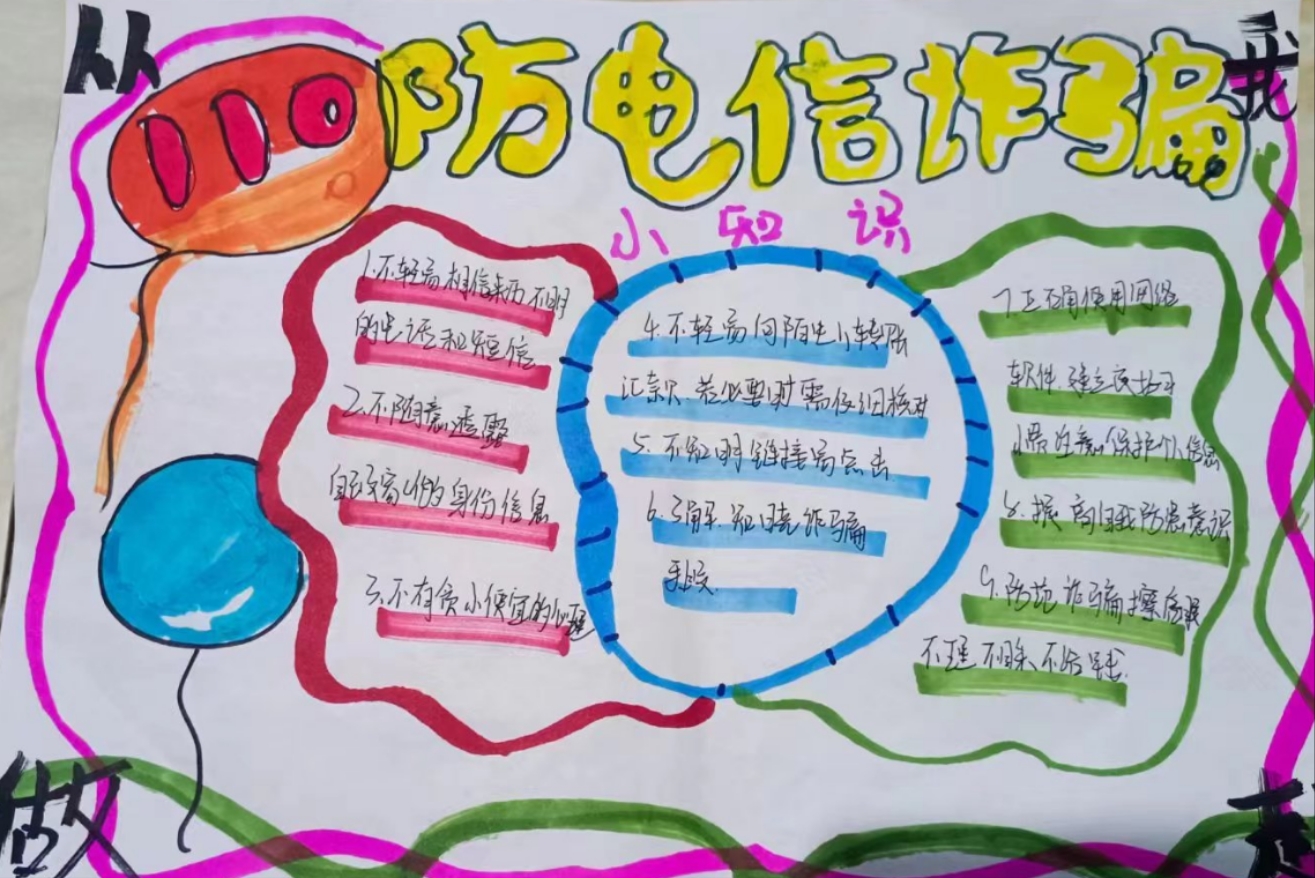 从
我
110
防电信诈骗
小知识
1.不轻易相信来历不明
的电话和短信
2.不随意透露
自己家人的身份信息
3.不有贪小便宜的心理
4.不轻易向陌生人转账
汇款.若必要时需仔细核对
5.不知明链接易点击
6.了解.知晓诈骗
手段.
7.正确使用网络
软件.建立良好习
惯注意保护个人信息
8.提高自我防患意识
9.防范诈骗擦亮眼
不理不睬不给钱.
做